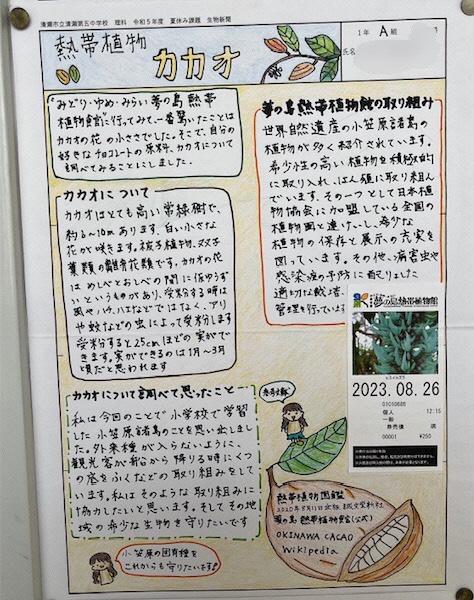 清瀬市立清瀬第五中学校 理科 令和5年度 夏休み課題 生物新聞
熱帯植物
カカオ
1年 A組
氏名
"みどり・ゆめ・みらい夢の島熱帯
植物館"に行ってみて、一番驚いたことは
カカオの花の小ささでした。そこで、自分の
好きなチョコレートの原料、カカオについて
調べてみることにしました。
カカオについて
カカオはとても高い常緑樹で、
約6〜10mあります。白い小さな
花が咲きます。被子植物、双子
葉類の離弁花類です。カカオの花
はめしべとおしべの間に仮ゆうず
いというものがあり、受粉する時は
風やハウ、ハエなどではなく、アリ
や蚊などの虫によって受粉します
受粉すると25cmほどの実がで
きます。実ができるのは1月〜3月
頃だと思われます
夢の島熱帯植物館の取り組み
世界自然遺産の小笠原諸島の
植物が多く紹介されています。
希少性の高い植物を積極的
に取り入れ、はん殖に取り組ん
でいます。その一つとして日本植
物協会に加盟している全国の
植物園と連けいし、希少な
植物の保存と展示の充実を
図っています。その他、病害虫や
感染源の予防に配りょした
適切な栽培
管理を行っています
夢の島熱帯植物館
ヒスイカズラ
2023.08.26
01010686
個人 12:15
一般
券売機 橋
00001 ¥250
カカオについて調べて思ったこと
私は今回のことで小学校で学習
した小笠原諸島のことを思い出しまし
た。外来種が入らないように、
観光客が船から降りる時にくつ
の底をふくなどの取り組みをして
います。私はそのような取り組みに
協力したいと思います。そしてその地
域の希少な生物を守りたいです
参考文献
熱帯植物図鑑
夢の島熱帯植物館(公式)
OKINAWA CACAO
Wikipedia
小笠原の固有種を
これからも守りたいです!